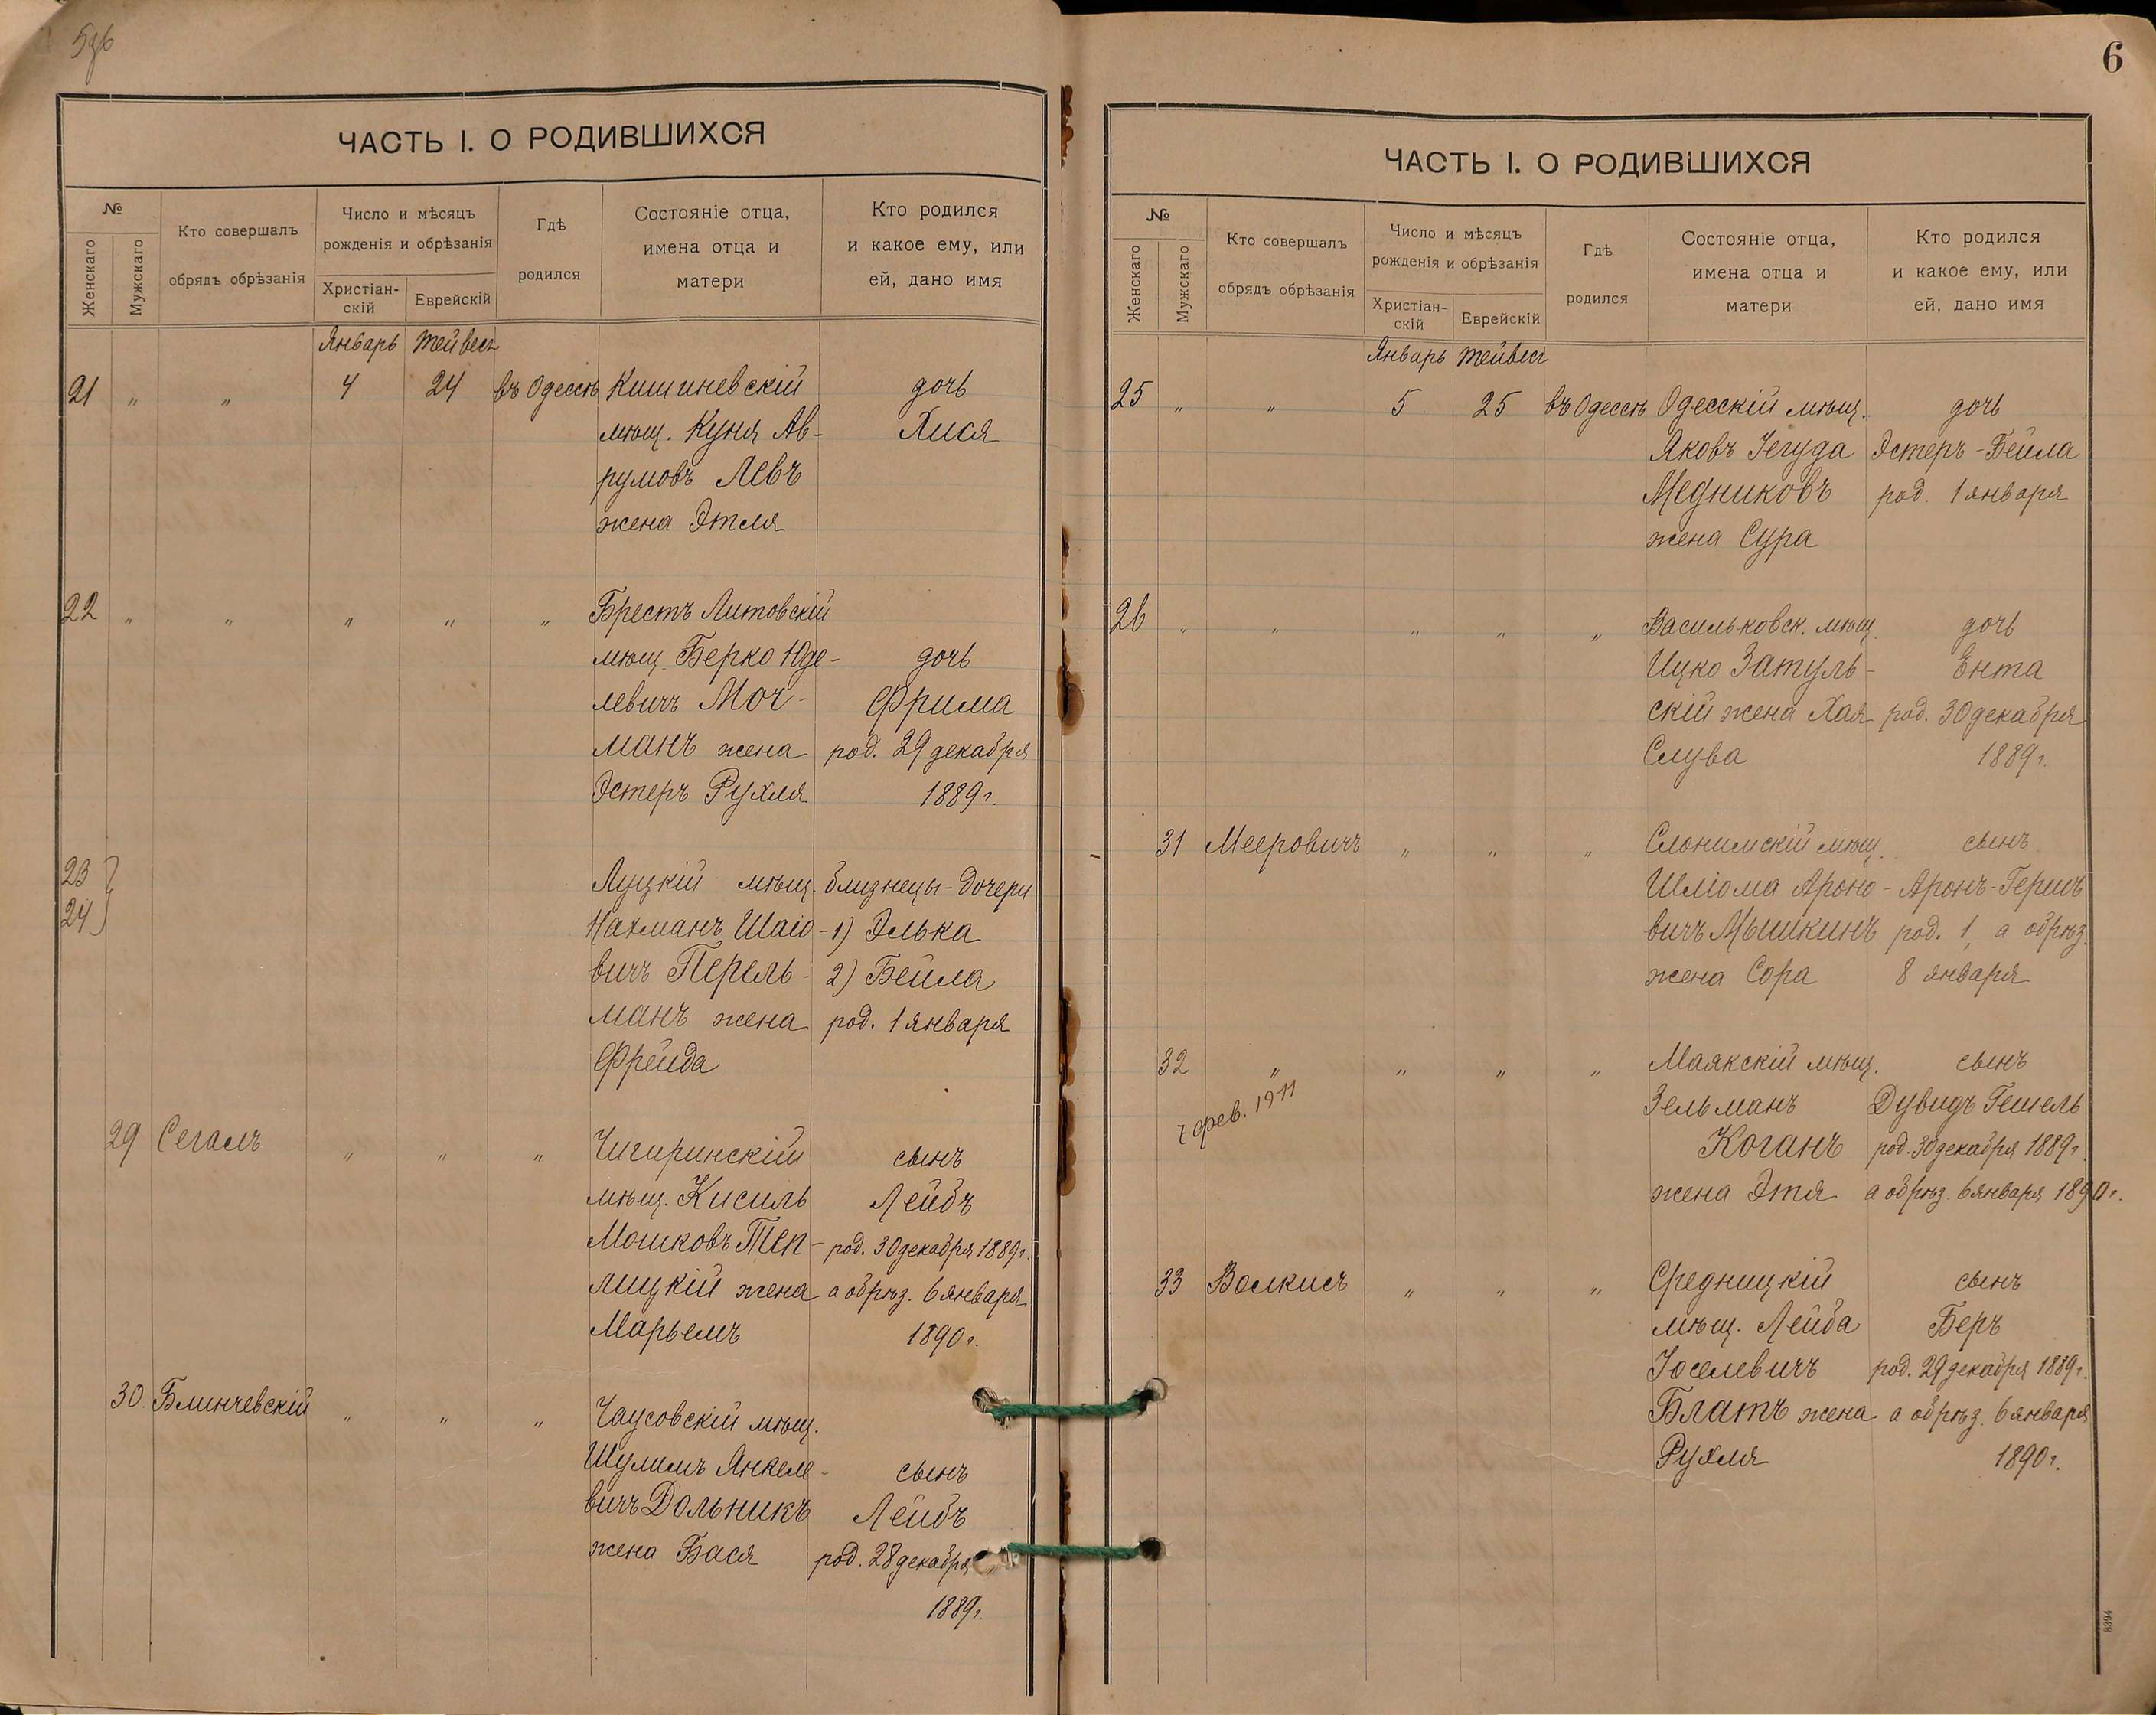 ЧАСТЬ I. О РОДИВШИХСЯ
№
Женскаго
Мужскаго
Кто совершалъ
обрядъ обрѣзанія
Число и мѣсяцъ
рожденія и обрѣзанія
Христіан-
скій
Еврейскій
Гдѣ
родился
Состояніе отца,
имена отца и
матери
Кто родился
и какое ему, или
ей, дано имя
Январь Тейвесъ
21 „ „ 4 24 въ Одессѣ Кишиневскій дочь
мѣщ. Куня Ав- Хися
румовъ Левъ
жена Этля
22 „ „ „ „ „ Брестъ Литовскій
мѣщ. Берко Юде- дочь
левичъ Моч- Фрима
манъ жена род. 29 декабря
Эстеръ Рухля 1889 г.
23
24
Луцкій мѣщ. близнецы-дочери
Нахманъ Шаіо- 1) Элька
вичъ Перель- 2) Бейла
манъ жена род. 1 января
Фрейда
29 Сегалъ „ „ „ Чигиринскій сынъ
мѣщ. Кисиль Лейбъ
Мошковъ Теп- род. 30 декабря 1889 г.
лицкій жена а обрѣз. 6 января
Марьемъ 1890 г.
30 Блинчевскій „ „ „ Чаусовскій мѣщ.
Шулимъ Янкеле- сынъ
вичъ Дольникъ Лейбъ
жена Бася род. 28 декабря
1889 г.
6
ЧАСТЬ I. О РОДИВШИХСЯ
№
Женскаго
Мужскаго
Кто совершалъ
обрядъ обрѣзанія
Число и мѣсяцъ
рожденія и обрѣзанія
Христіан-
скій
Еврейскій
Гдѣ
родился
Состояніе отца,
имена отца и
матери
Кто родился
и какое ему, или
ей, дано имя
Январь Тейвесъ
25 „ „ 5 25 въ Одессѣ Одесскій мѣщ. дочь
Яковъ Іегуда Эстеръ-Бейла
Медниковъ род. 1 января
жена Сура
26 „ „ „ „ „ Васильковск. мѣщ. дочь
Ицко Затуль- Ента
скій жена Хая род. 30 декабря
Слува 1889 г.
31 Мееровичъ „ „ „ Слонимскій мѣщ. сынъ
Шліома Ароно- Аронъ-Гершъ
вичъ Мышкинъ род. 1, а обрѣз.
жена Сора 8 января
32 „ „ „ „ Маякскій мѣщ. сынъ
7 фев. 1911
Зельманъ Дувидъ Гешель
Коганъ род. 30 декабря 1889 г.
жена Этя а обрѣз. 6 января 1890 г.
33 Волкисъ „ „ „ Средницкій сынъ
мѣщ. Лейба Беръ
Іоселевичъ род. 29 декабря 1889 г.
Блатъ жена а обрѣз. 6 января
Рухля 1890 г.
8394